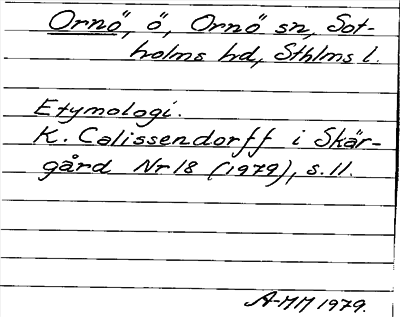 Ornö, ö, Ornö sn, Sot-
holms hd, Sthlms l.
Etymologi.
K. Calissendorff i Skär-
gård Nr 18 (1979), s. 11.
A-MM 1979.